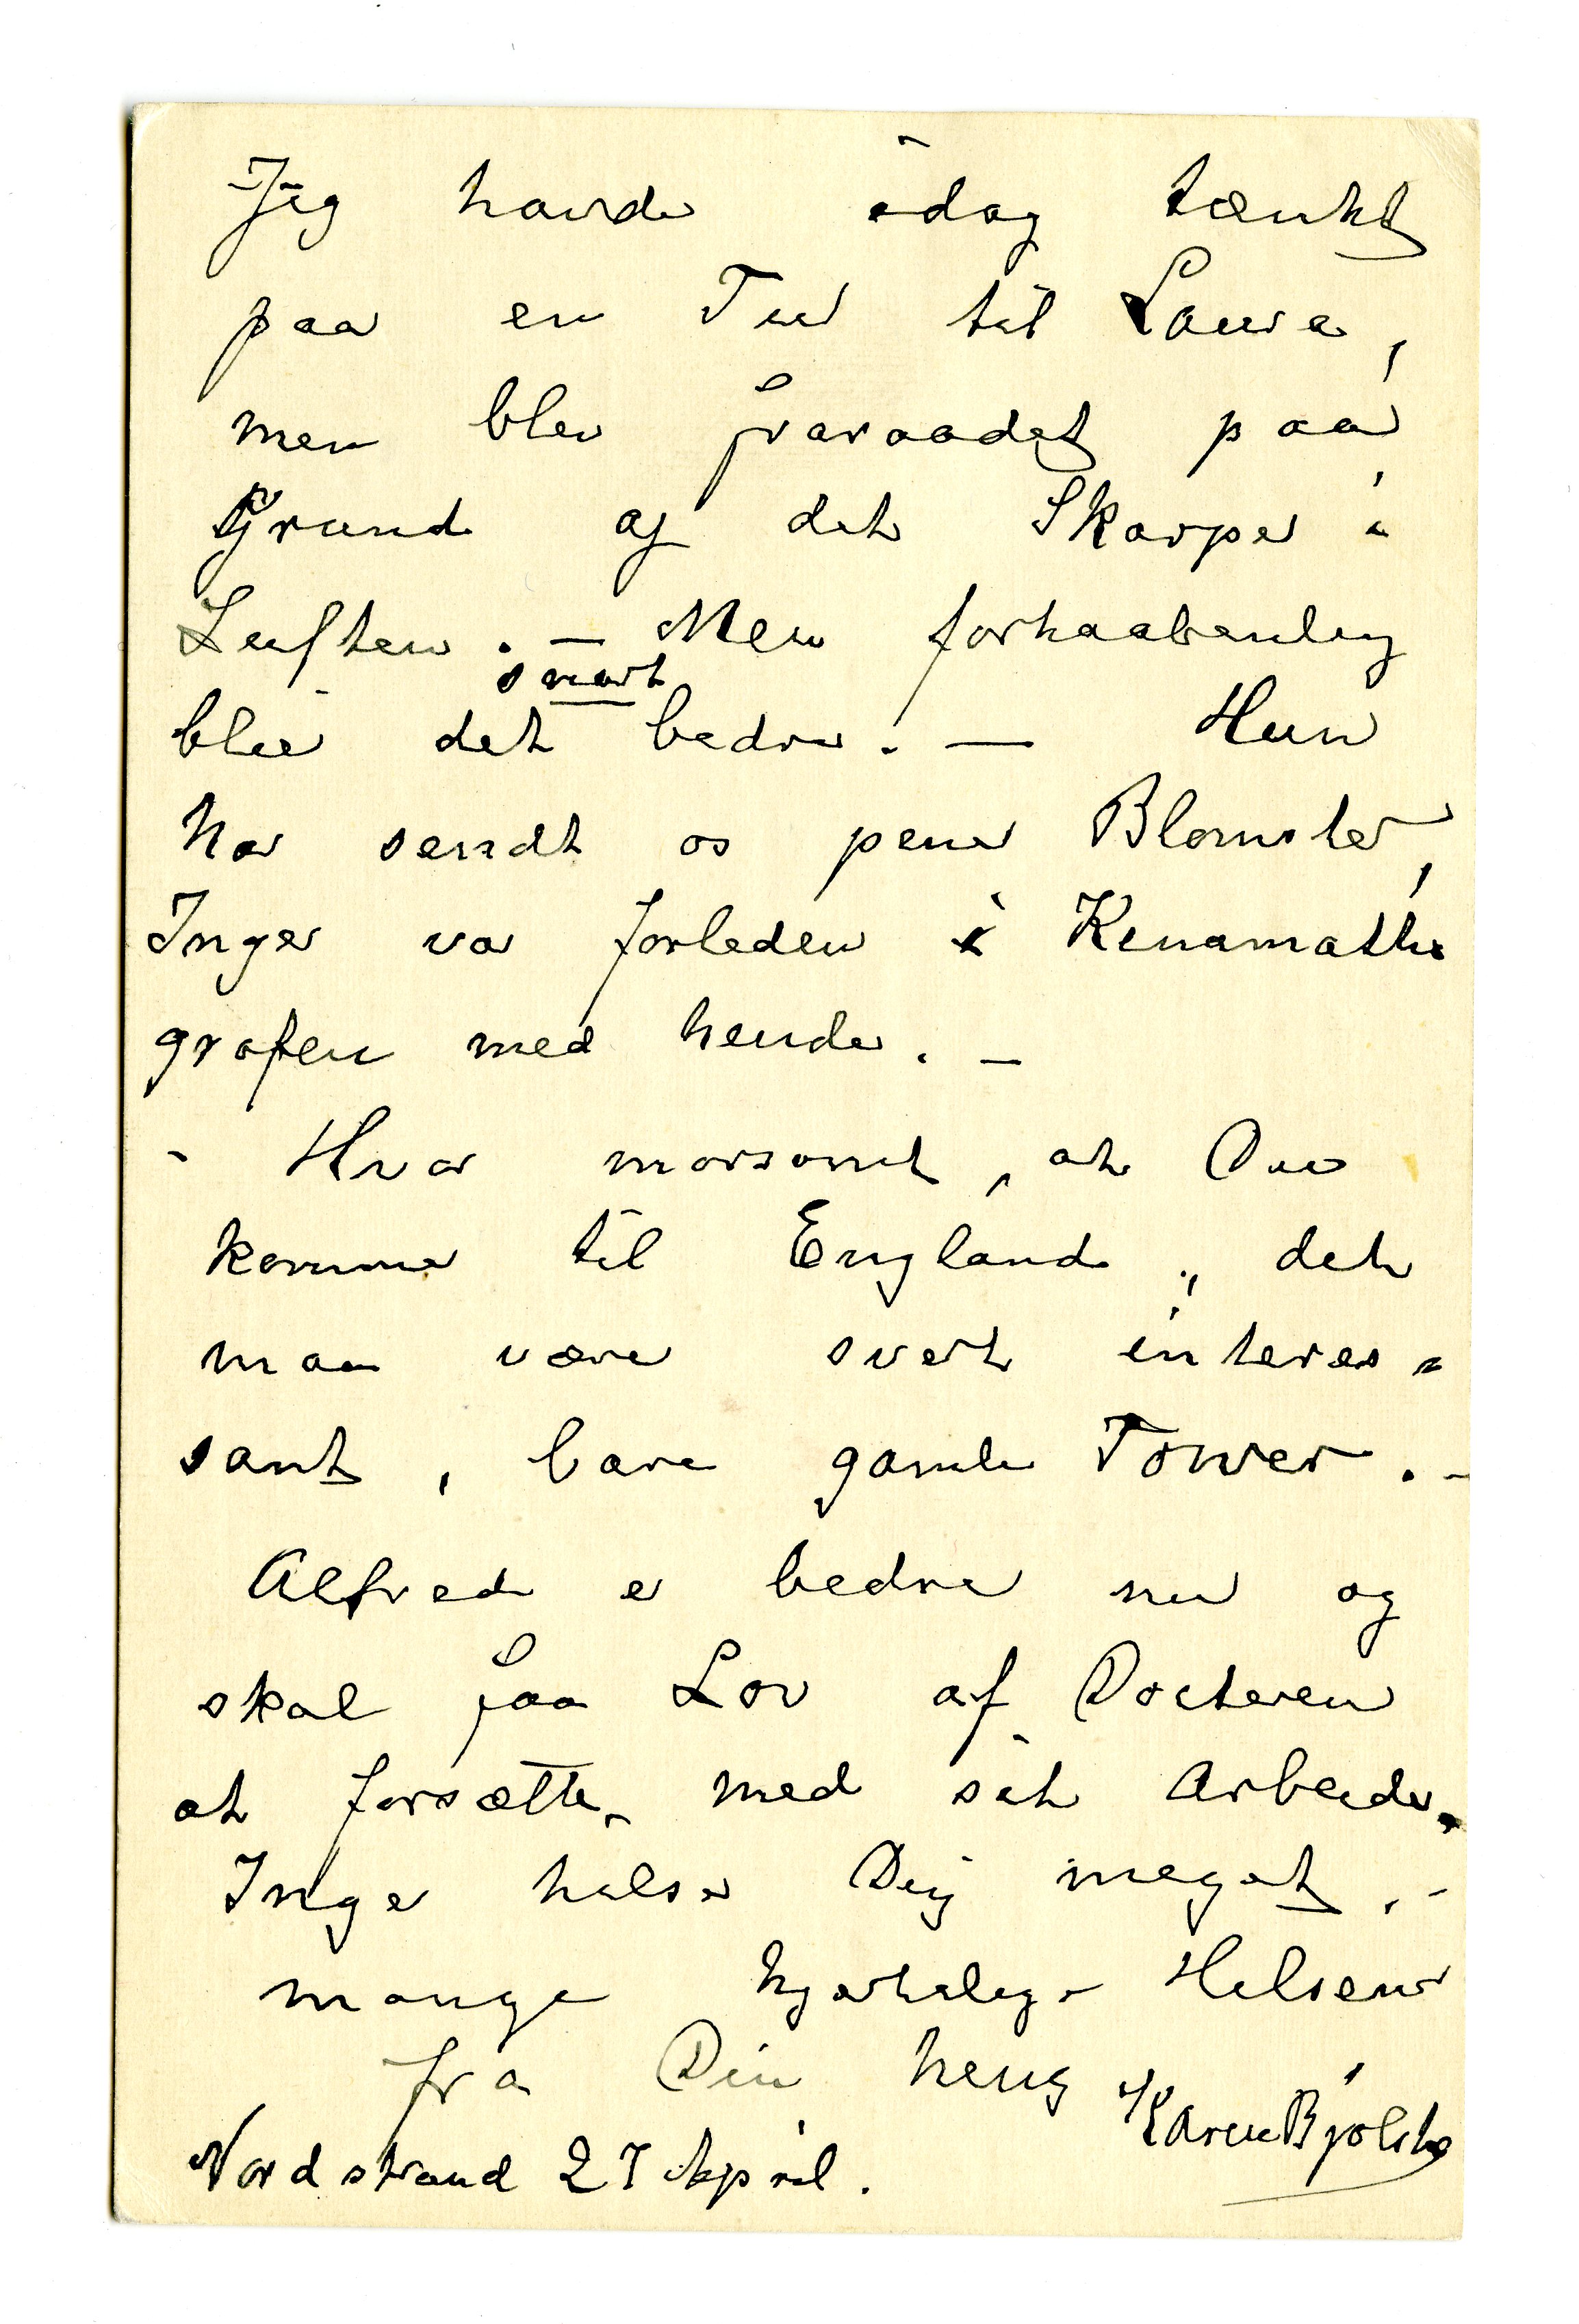 Jeg havde idag tænkt
paa en Tur til Laura,
men blev fraraadet paa
Grund af det Skarpe i
Luften. — Men forhaabenlig
blir det smart bedre. — Hun
har sendt os pene Blomster,
Inger var forleden i Kenamatho
grafen med hende. —
- Hvor morsomt, at Du
kommer til England, det
maa være svert interes=
sant, bare gamle Tower. -
Alfred er bedre nu og
skal faa Lov af Doctoren
at forsætte med sit Arbeide.
Inger hilser Dig meget. -
mange hjertelige Hilsener
fra Din heng
Karen Bjølstad
Nordstrand 27 April.